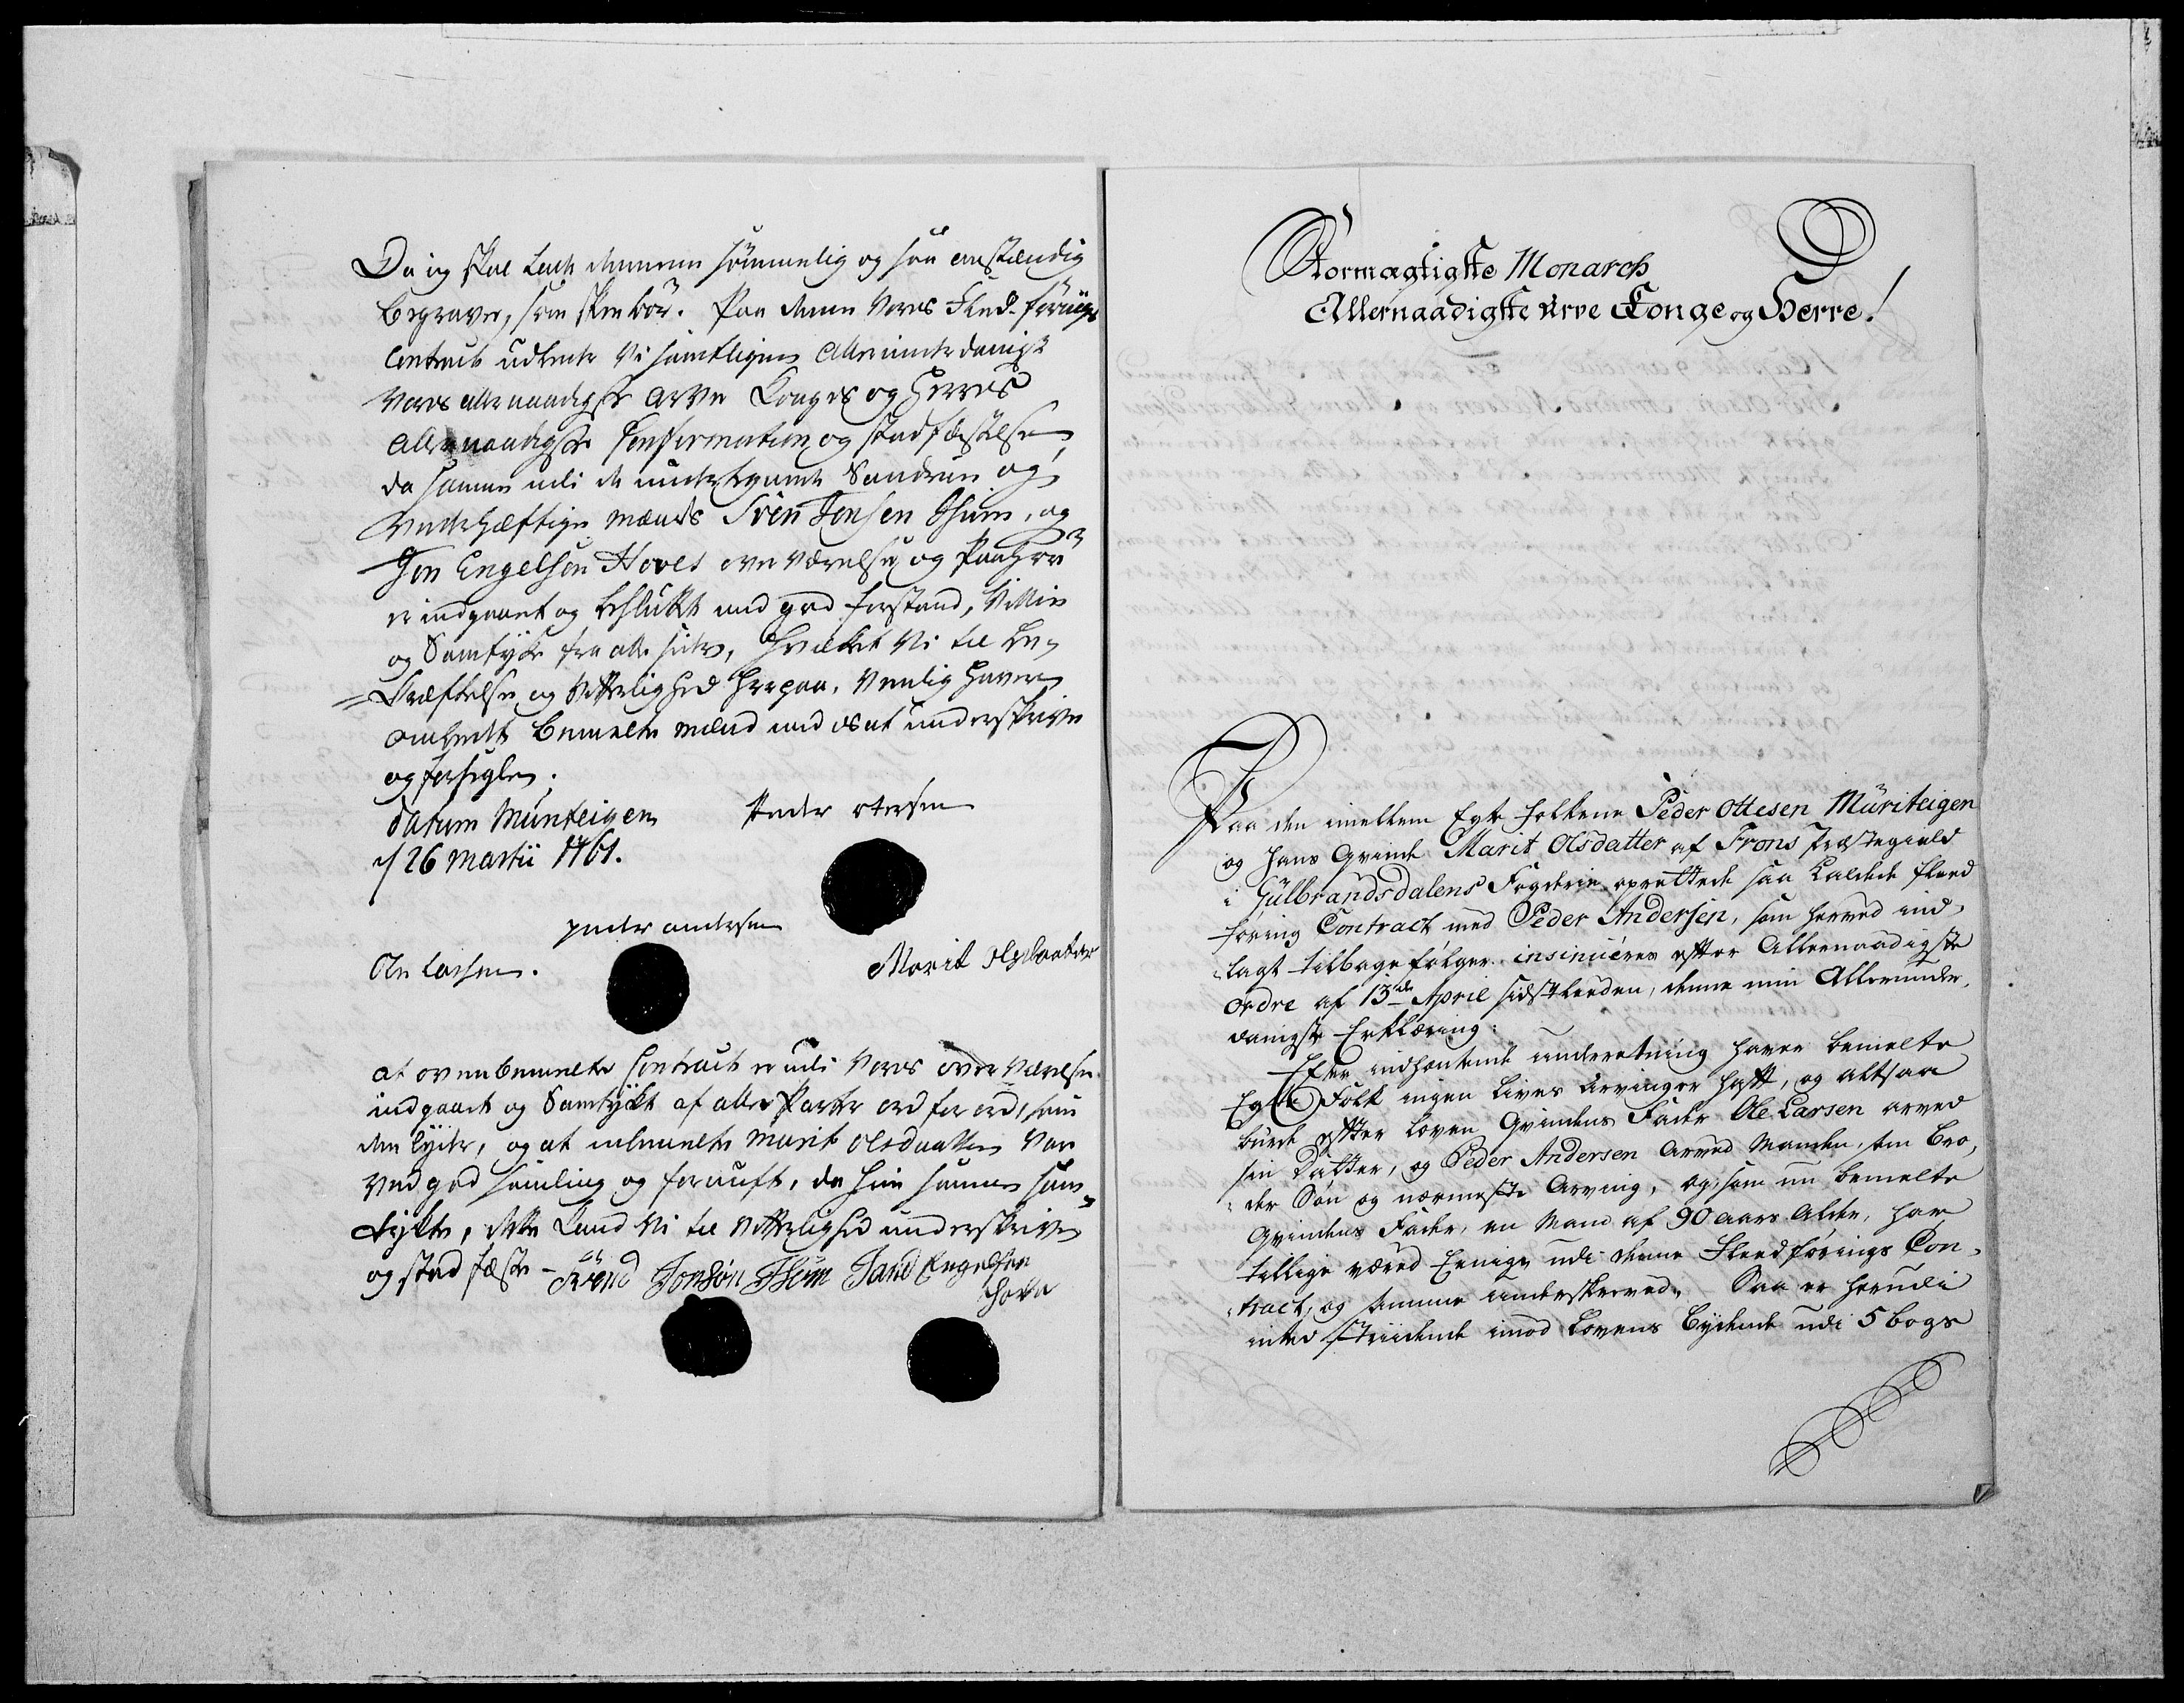 Da jeg skal lade dennem sömmelig og saa anstændig
begraver, som skee bör. Paa denne Vores Fled-förings
Contract udbeder Vi samtligen allerunderdanigst
Vores allernaadigste Arve Konges og Herres
allernaadigste Confirmation og stadfæstelse,
da samme udi de undertegnede Dannemænd og
Vederhæftige mænds Sven Jonsen Thum, og
Jon Engelsen Hoves overværelse og Paahör
er indgaaet og besluttet med god forstand, Villie
og Samtykke fra alle sider, hvilket Vi til be-
Kræftelse og Vitterlighed herpaa, Venlig haver
ombedet bemelte mænd med os at underskrive
og forsegle.
Datum Munteigen
d 26 Martii 1761.
Peder otersen
peder andersen
Ole Larsen.
Marit Olsdaatter
at ovenbemelte Contract er udi Vores overværelse
indgaaet og Samtykt af alle Parter ord for ord, som
den lyder, og at velmelte Marit Olsdaatter Var
Ved god samling og fornuft, da hun samme sam-
tykte, dette Kand Vi til Vitterlighed underskrive
og stadfæste - Svend Jonsön Thum Jand Engelsen
Hove
Stormægtigste Monarch
Allernaadigste Arve Konge og Herre!
Paa den imellem Egte Folkene Peder Ottesen Muriteigen
og hans Qvinde Marit Olsdatter af Frons Præstegield
i Gulbrandsdalens Fogderie oprettede saa kaldede Fled
föring Contract med Peder Andersen, som herved ind-
lagt tilbage fölger insinueres efter Allernaadigste
Ordre af 13de April sidstleeden, denne min Allerunder-
danigste Erklæring:
Efter indhentende underretning haver bemelte
Egte Folk ingen Livs Arvinger haft, og altsaa
burde efter Loven Qvindens Fader Ole Larsen arved
sin Datter, og Peder Andersen Arved Manden, sin Bro-
der Sön og nærmeste Arving, og som nu bemelte
Qvindens Fader, en Mand af 90 Aars Alder, har
tillige været Eenige udi denne Fleedförings Con-
tract, og samme underskreved, Saa er herudi
inted striidende imod Lovens Bydende udi 5 bogs